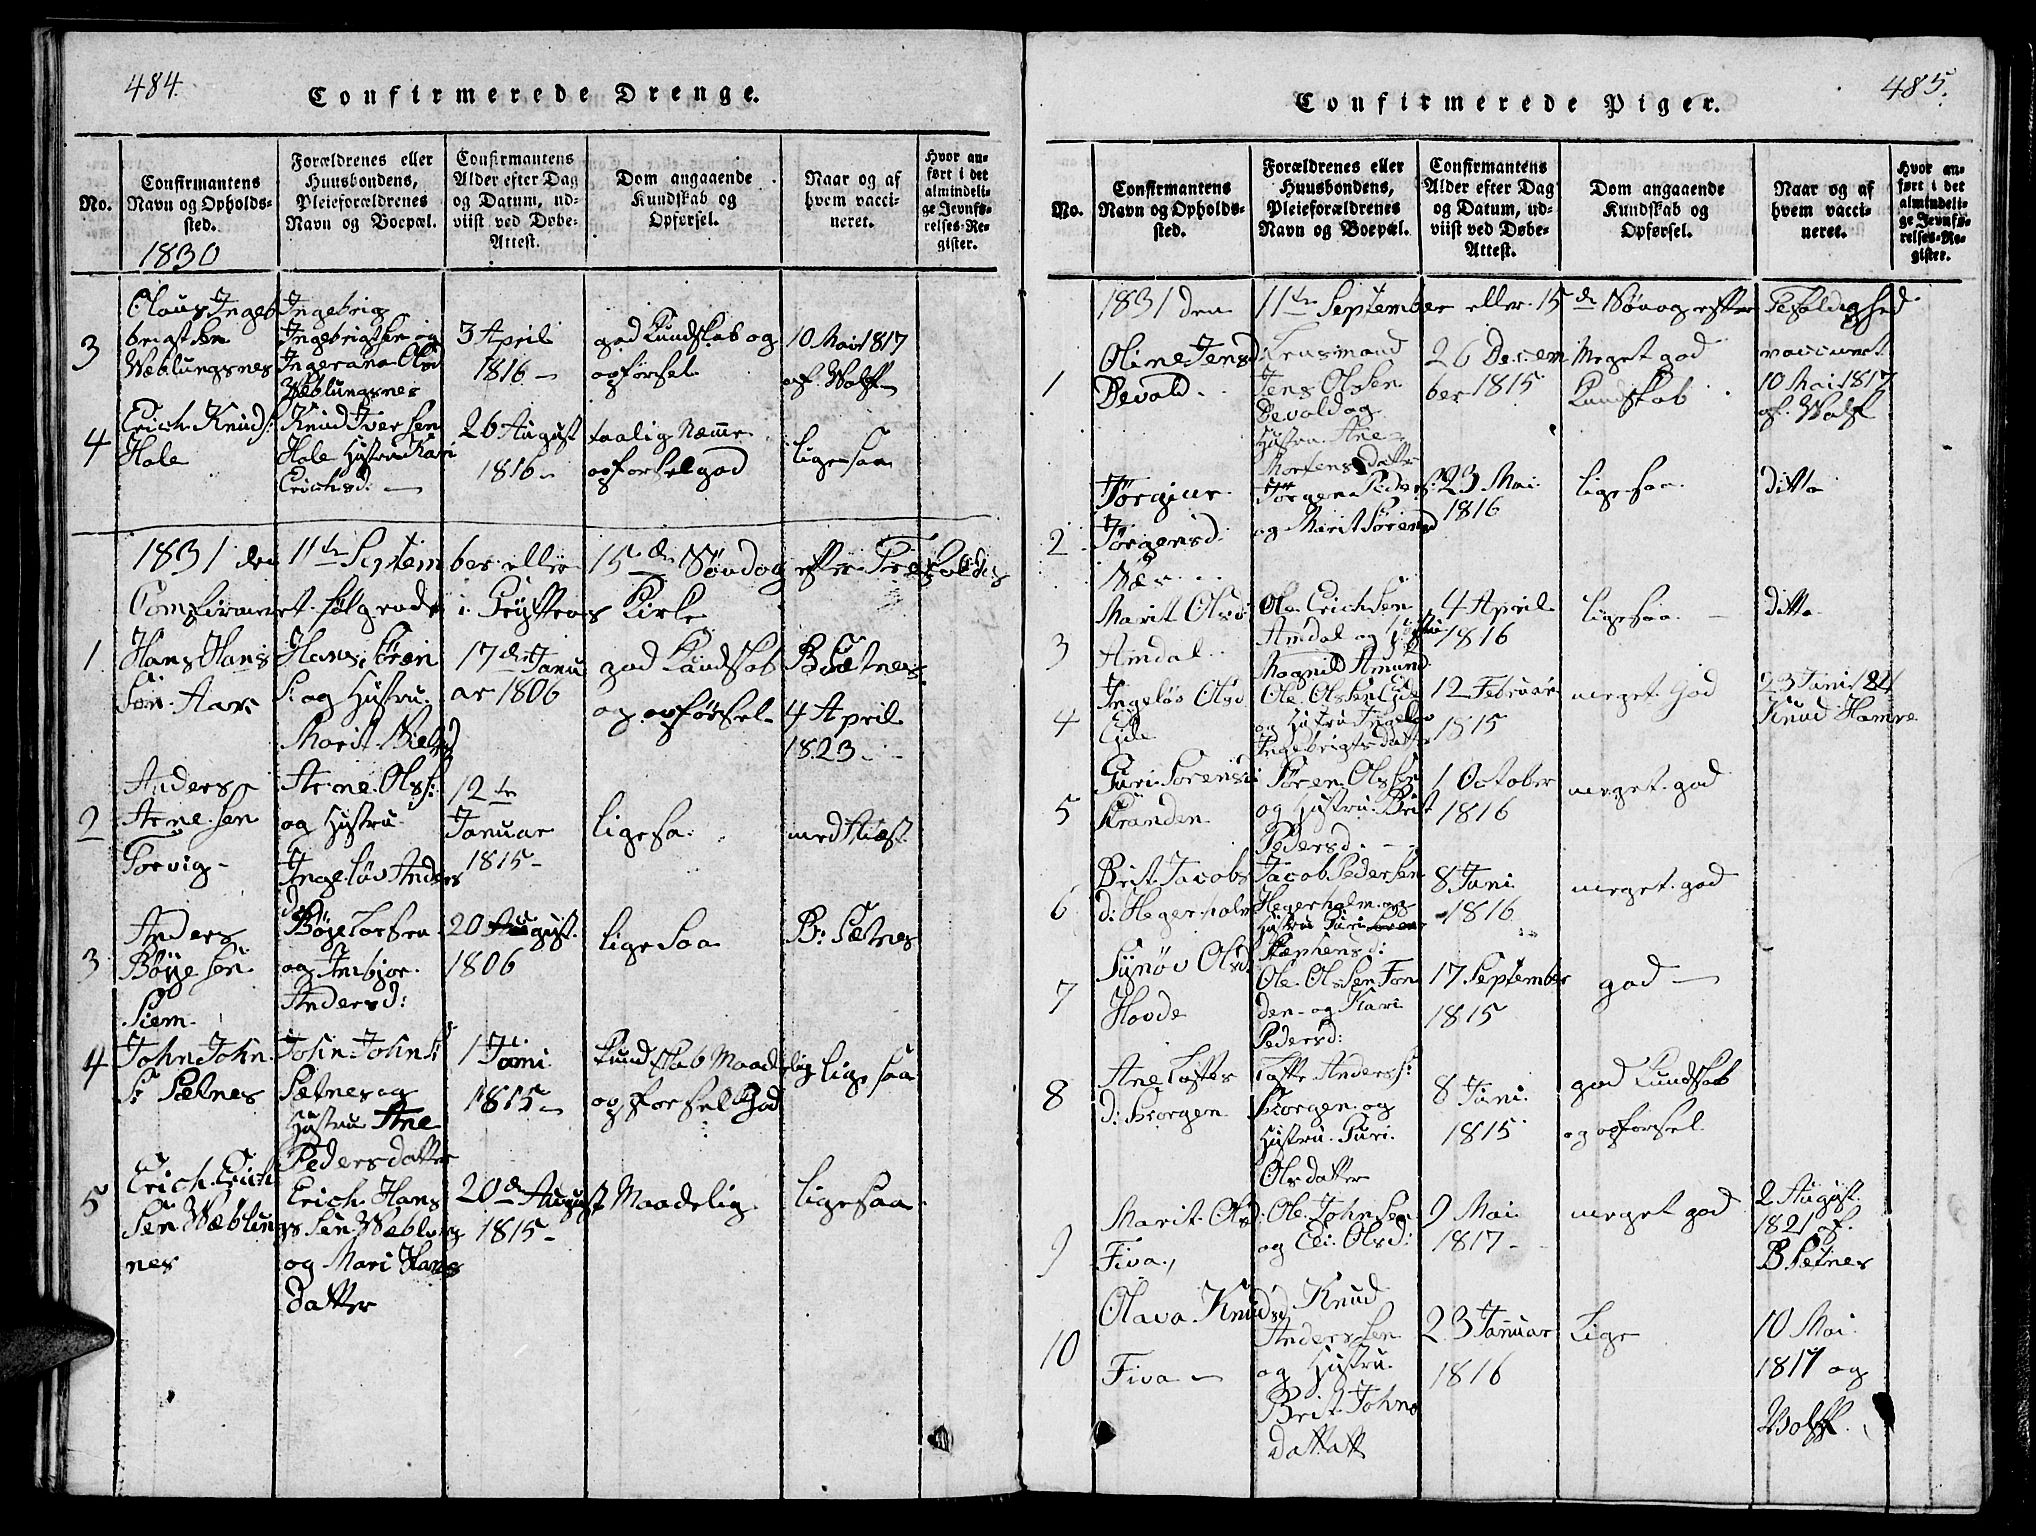 484.
Confirmerede Drenge.
No.
Confirmantens Navn og Opholds-sted.
Forældrenes eller Huusbondens, Pleieforældrenes Navn og Boepæl.
Confirmantens Alder efter Dag og Datum, ud-viist ved Døbe-Attest.
Dom angaaende Kundskab og Opførsel.
Naar og af hvem vacci-neret.
Hvor an-ført i det almindeli-ge Jevnfø-relses-Re-gister.
1830
3
Olaus Ingeb
brigtsen
Wæblungsnes
Ingebrig
Ingebrigtsen og
Ingerana Olsd
Wæblungsnes
3 April
1816 –
god Kundskab og
opførsel
10 Mai 1817
af Wolff
4
Erich Knuds:
Hole
Knud Iversen
Hole Hustru Kari
Erichsd: –
26 August
1816 –
taalig Næmme
opførsel god
ligesaa
1831 den 11te September eller 15de Søndag efter Trefoldigs
Comfirmert følgende i Gryttens Kirke
1
Hans Hans
Søn Aars
Hans Søren
S: og Hustru
Marit Nielsd
17de Janu
ar 1806
god Kundskab
og opførsel
B Sætnes
4 April
1823 –
2
Anders
Arnesen
Torvig –
Arne Ols:
og Hustru
Ingeløv Anders
d:
12te
Januar
1815 –
ligesa
med Næst
3
Anders
Böyesen
Siem
Böye Larsen
og Ambjor
Andersd:
20 August
1806
ligesaa
B: Sætnes
4
John John
S: Sætnes
John Johns:
Sætnes og
Hustru Ane
Pedersdatter
1 Juni
1815 –
Kundskab Maadelig
opførsel God
lige saa
5
Erich Erich
sen Wæblungs
nes
Erich Hans
sen Wæblung
og Mari Hans
datter
20de August
1815 –
Maadelig
ligesaa
485.
Confirmerede Piger.
No.
Confirmantens Navn og Opholds-sted.
Forældrenes eller Huusbondens, Pleieforældrenes Navn og Boepæl.
Confirmantens Alder efter Dag og Datum, ud-viist ved Døbe-Attest.
Dom angaaende Kundskab og Opførsel.
Naar og af hvem vacci-neret.
Hvor an-ført i det almindeli-ge Jevnfø-relses-Re-gister.
1831 den 11te September eller 15de Søndag efter Trefoldighed
1
Oline Jensd
Devold
Lensmand
Jens Olsen
Devold og
Hustru Ane
Mortensdatter
26 Decem
ber 1815
Meget god
Kundskab
vaccineret
10 Mai 1817
af Wolf
2
Jørgine
Jørgensd
Næs
Jørgen Peders:
og Marit Sørensd
23 Mai
1816
ligesaa
ditto
3
Marit Olsd:
Amdal
Ole Erichsen
Amdal og Hustru
Magnild Amund
4 April
1816
ligesaa
ditto
4
Ingeløv Olsd
Eide
Ole Olsen Eide
og Hustru Ingeløv
Ingebrigtsdatter
12 Februar
1815
meget God
23 Juni 1821
Knud Hamre
5
Guri Sørensd:
Stranden
Søren Olssen
og Hustru Brit
Pedersd:
1 October
1816
meget god
6
Brit Jacobs
d: Hegerholm
Jacob Pedersen
Hegerholm og
Hustru Guri
Stephensd:
8 Juni
1816
meget god
7
Synøv Olsd:
Hovde
Ole Olsen Ton
den og Kari
Pedersd:
17 September
1815
god –
8
Ane Toftes
d: Skorgen
Tofte Anders:
Skorgen og
Hustru Guri
Olsdatter
8 Juni
1815
god Kundskab
og opførsel
9
Marit Olsd:
Fiva
Ole Johnsen
og Eli Olsd:
9 Mai
1817 –
meget god
2 August
1821 af
B Sætnes
10
Olava Knudsd
Fiva –
Knud
Anderssen
og Hustru
Brit Johns
dattatt
23 Januar
1816
Lige
10 Mai
1817 og
Wolff